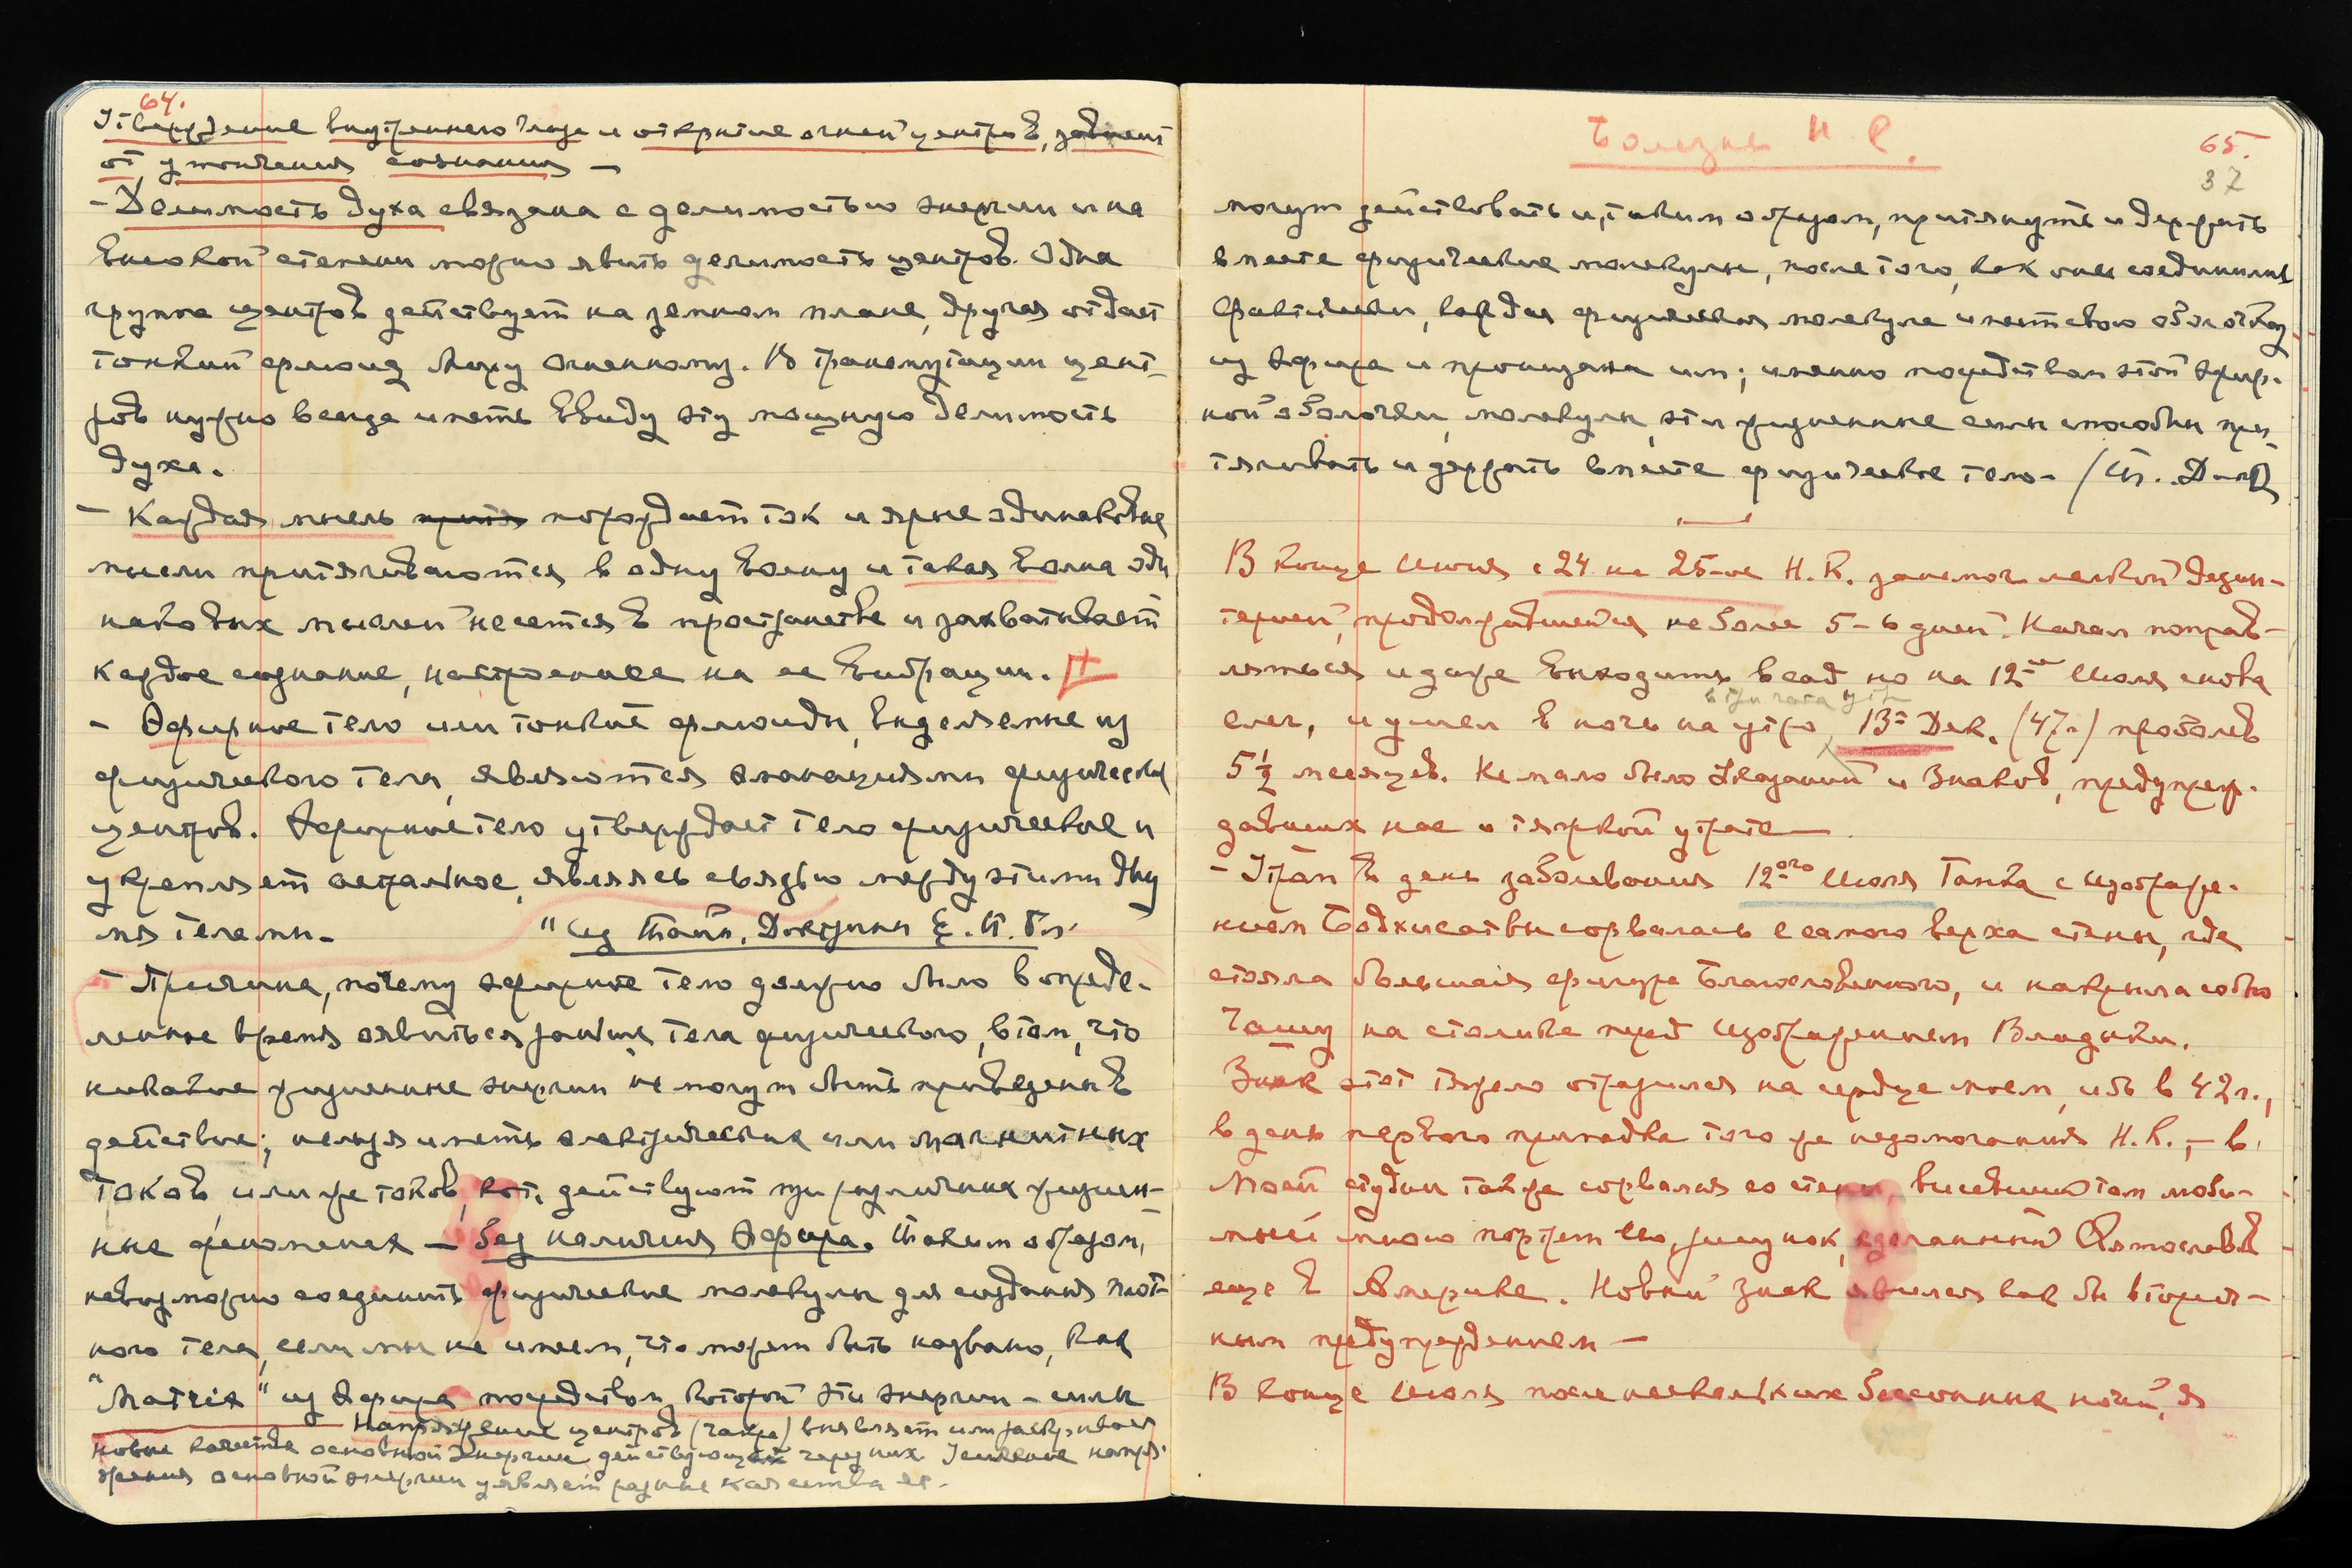 64.
Утверждение внутреннего глаза и открытие огней центров, зависит
от утончения сознания —
- Делимость духа связана с делимостью энергии и на
высокой степени можно явить делимость центров. Одна
группа центров действует на земном плане, другая отдает
тонкий флюид Миру Огненному. В трансмутации цент-
ров нужно всегда иметь ввиду эту мощную делимость
духа.
- Каждая мысль порождает ток и ярые одинаковые
мысли притягиваются в одну волну и такая волна оди
наковых мыслей несется в пространстве и захватывает
каждое сознание, настроенное на ее вибрации.
- Эфирное тело или тонкие флюиды, выделенные из
физического тела, являются эманациями физических
центров. Эфирное тело утверждает тело физическое и
укрепляет астральное, являясь связью между этими дву
мя телами-
"Из Тайн. Доктрины Е. П. Бл.
- Причина, почему эфирное тело должно было в опреде-
ленное время явиться раньше тела физического, в том, что
никакие жизненные энергии не могут быть приведены в
действие; нельзя иметь электрических или магнитных
токов, или же токов, кот. действуют при различных жизнен-
ных феноменах — без наличия Эфира. Таким образом,
невозможно соединить физические молекулы для создания плот-
ного тела, если мы не имеем, что может быть названо, как
"Matrix" из Эфира посредством которой эти энергии - силы
Напряжение центров (чакр) выявляет или раскрывает
новые качества основной Энергии действующей через них. Усиление напря-
жения основной энергии уявляет разные качества ее.
Болезнь Н К.
65.
37
могут действовать и, таким образом, притянуть и держать
вместе физические молекулы, после того, как они соединились
Фактически, каждая физическая молекула имеет свою оболочку
из Эфира и пронизана им; именно посредством этой эфир-
ной оболочки молекулы, эти жизненные силы способны при-
тягивать и держать вместе физическое тело- (Т. Д-на)
В конце Июня с 24 на 25-ое Н.К. занемог легкой дезин-
терией, продолжавшейся не более 5-6 дней. Начал поправ-
ляться и даже выходить в сад но на 12-ое Июля снова
в три часа утр
слег, и ушел в ночь на утро 13-е Дек. (47г.) проболев
5½ месяцев. Не мало было Указаний и Знаков, предупреж-
давших нас о тяжкой утрате—
- Утром в день заболевания 12-ого Июля Танка с изображе-
нием Бодхисатвы сорвалась с самого верха стены, где
стояла большая фигура Благословенного, и накрыла собою
Чашу на столике пред Изображением Владыки.
Знак этот тяжело отразился на сердце моем, ибо в 42г.,
в день первого припадка того же недомогания Н.К., - в
Моей студии также сорвался со стены, висевший там люби-
мый мною портрет Его, рисунок, сделанный Святославом
еще в Америке. Новый Знак явился как бы вторич-
ным предупреждением —
В конце Июля после нескольких бессонных ночей, я